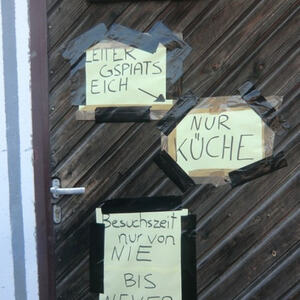 LEITER
GSPIATS
EICH
NUR
KÜCHE
Besuchszeit
nur von
NIE
BIS
NEVER